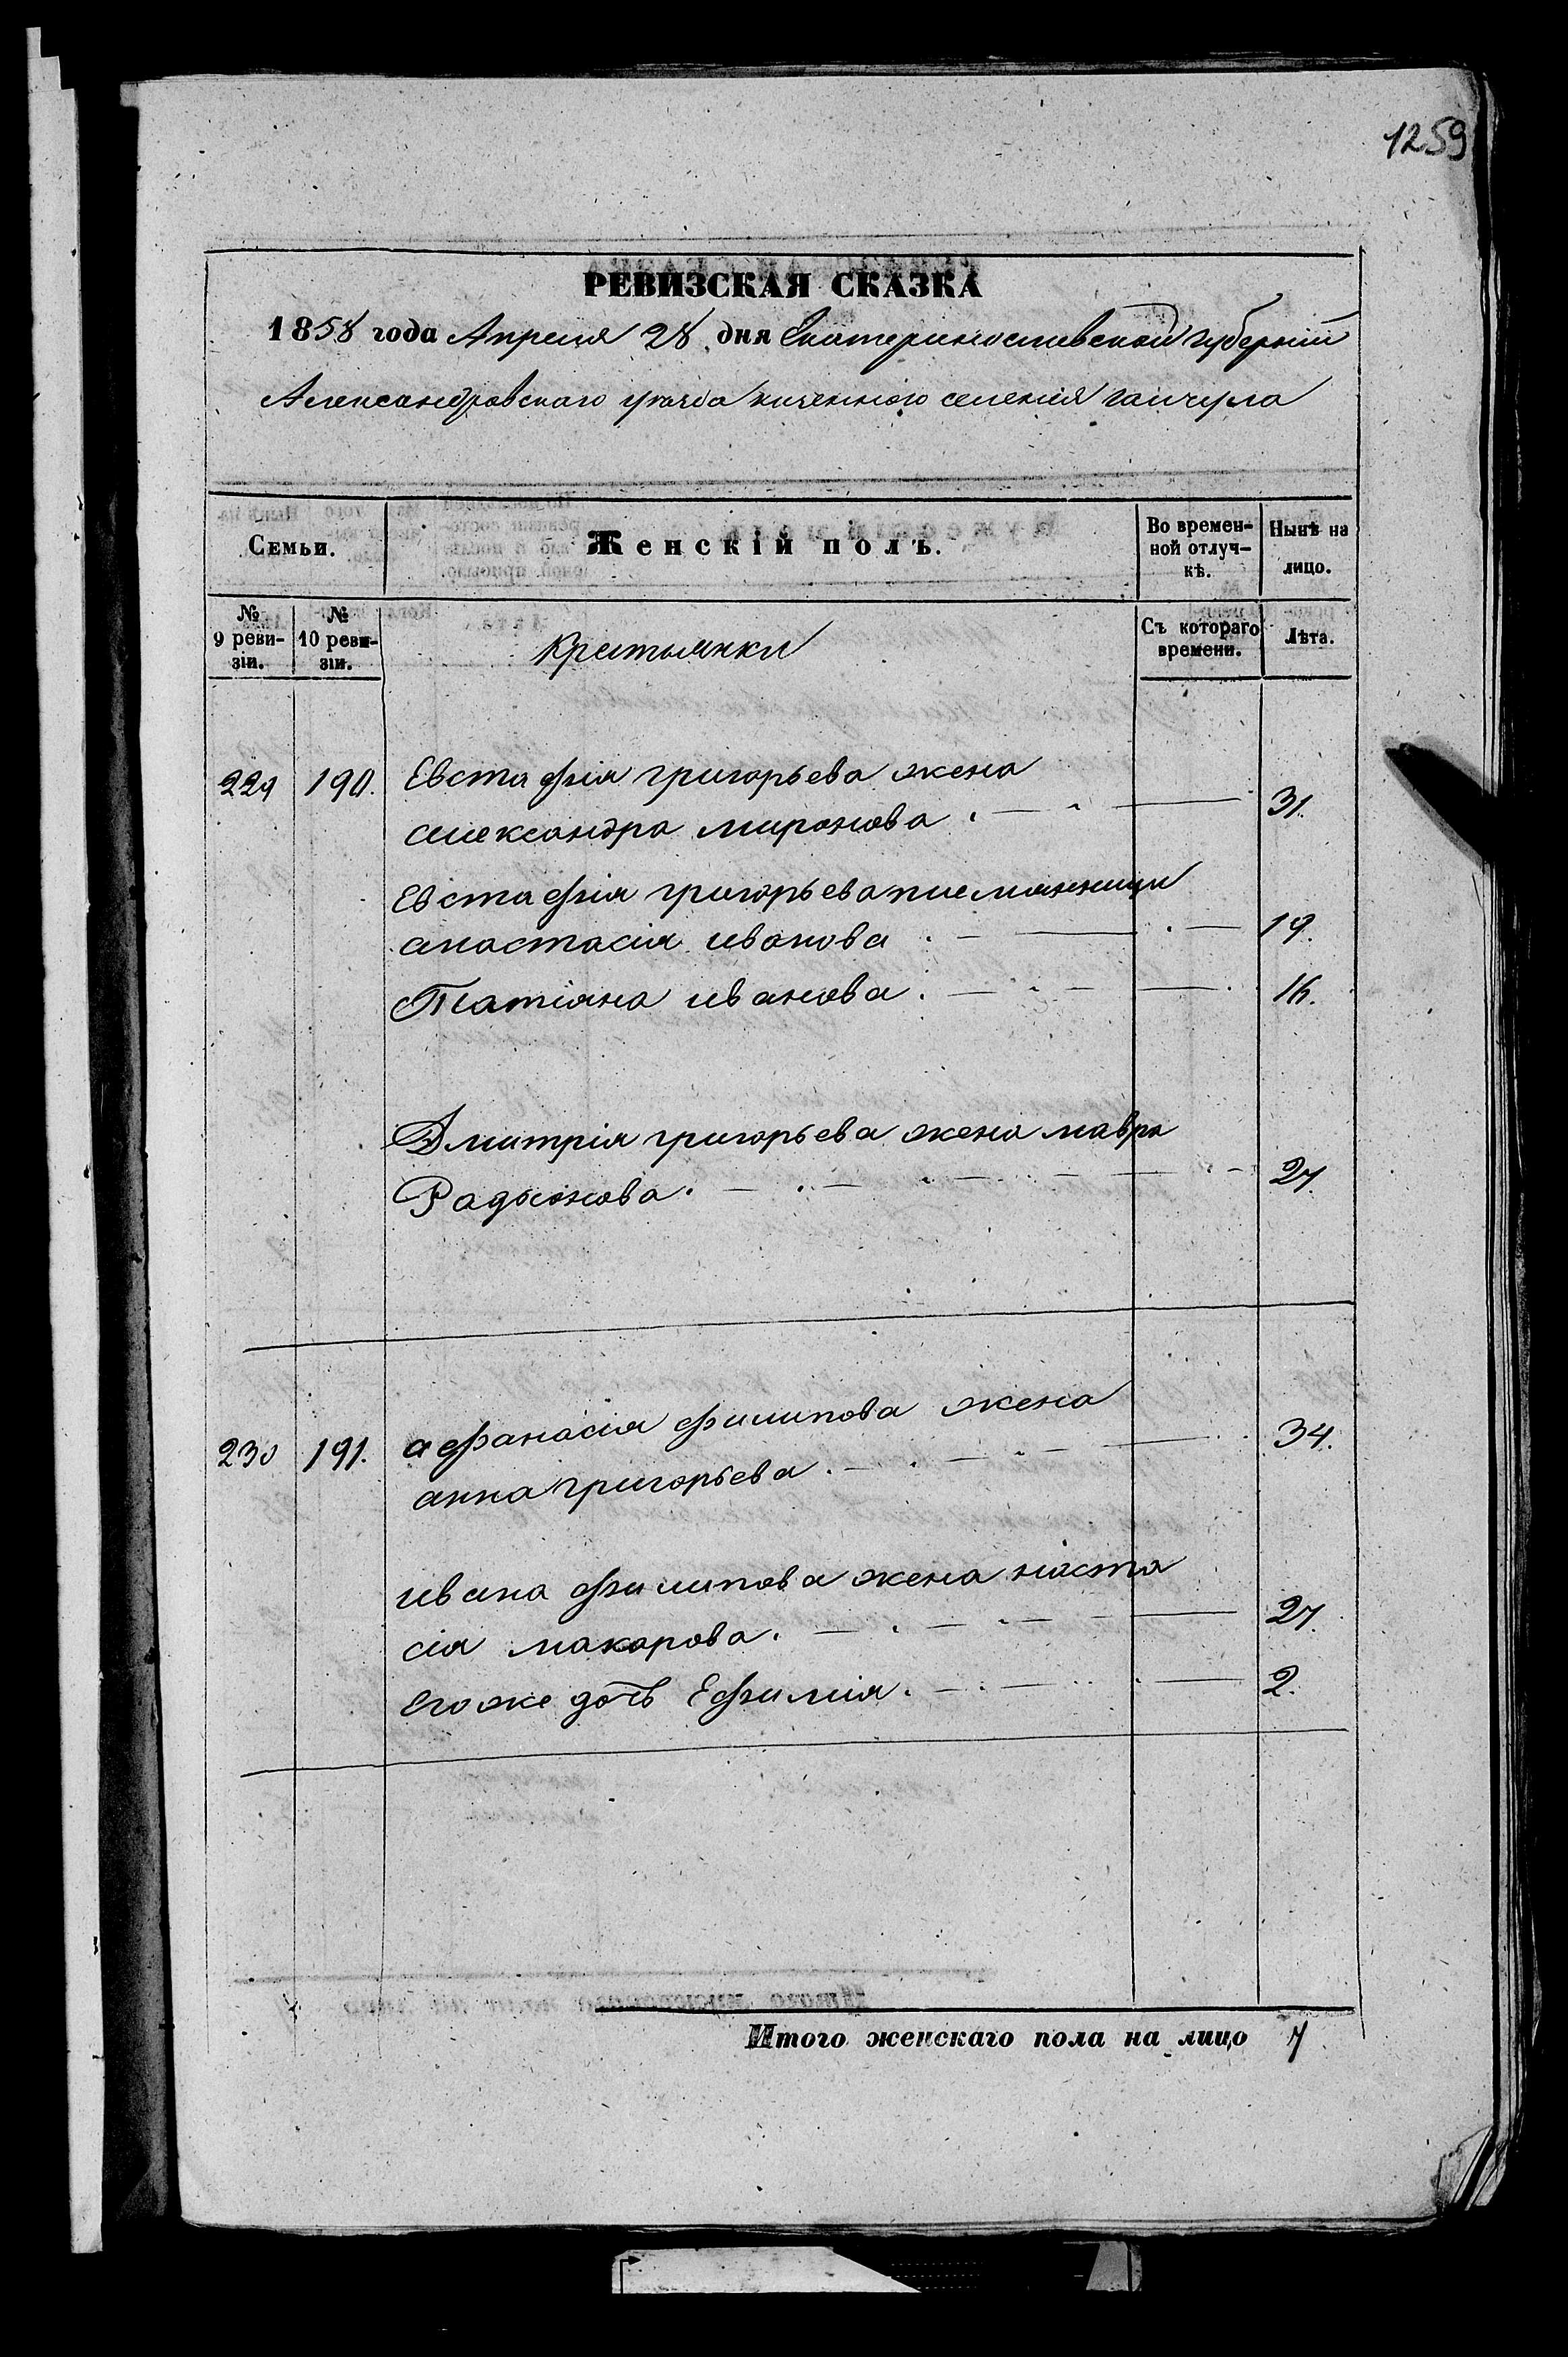 1259
РЕВИЗСКАЯ СКАЗКА
1858 года Апреля 28 дня Екатеринославской губерніи
Александровскаго уезда казеннаго селенія гайчула
Семьи. Женскій полъ. Во времен-ной отлуч-кѣ. Нынѣ на лицо.
№ 9 реви-зіи. № 10 реви-зіи. Крестьянки Съ котораго времени. Лѣта.
229 190. Евстафія григорьева жена
александра миронова. 31.
Евстафія григорьева племянницы
анастасія иванова 19.
Татіяна иванова. 16.
Дмитрія григорьева жена мавра
Радионова. 27.
230 191. афанасія филипова жена 34.
анна григорьева.
ивана филипова жена наста
сія макарова. 27.
Его же дочь Ефимія. 2.
Итого женскаго пола на лицо 7